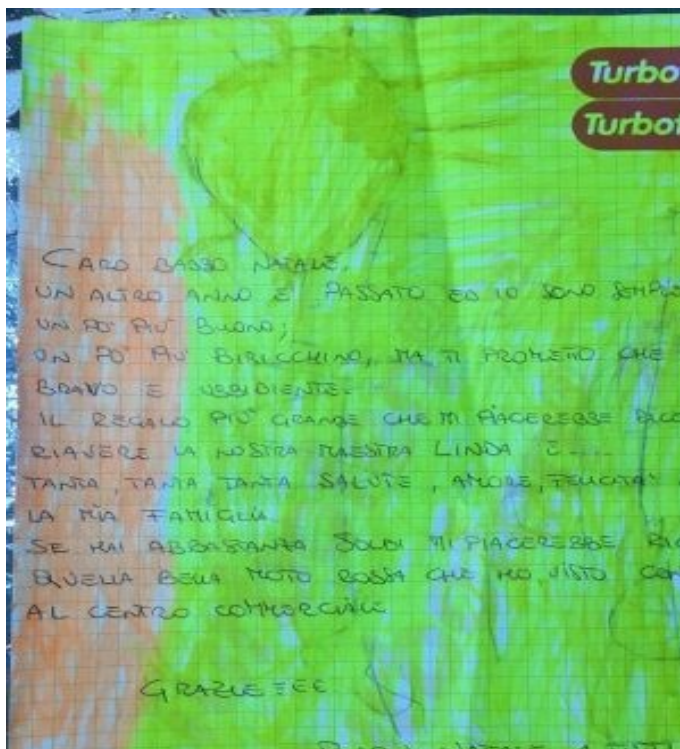 Turbo
Turbo
CARO BABBO NATALE,
UN ALTRO ANNO E' PASSATO ED IO SONO SEMPRE
UN PO' PIU' BUONO;
UN PO' PIU' BIRICCHINO, MA TI PROMETTO CHE
BRAVO E UBBIDIENTE.
IL REGALO PIU' GRANDE CHE MI PIACEREBBE RICE
RIAVERE LA NOSTRA MAESTRA LINDA E....
TANTA, TANTA TANTA SALUTE, AMORE, FELICITA'
LA MIA FAMIGLIA.
SE HAI ABBASTANZA SOLDI MI PIACEREBBE RIC
QUELLA BELLA MOTO ROSSA CHE HO VISTO CON
AL CENTRO COMMERCIALE
GRAZIEEEE